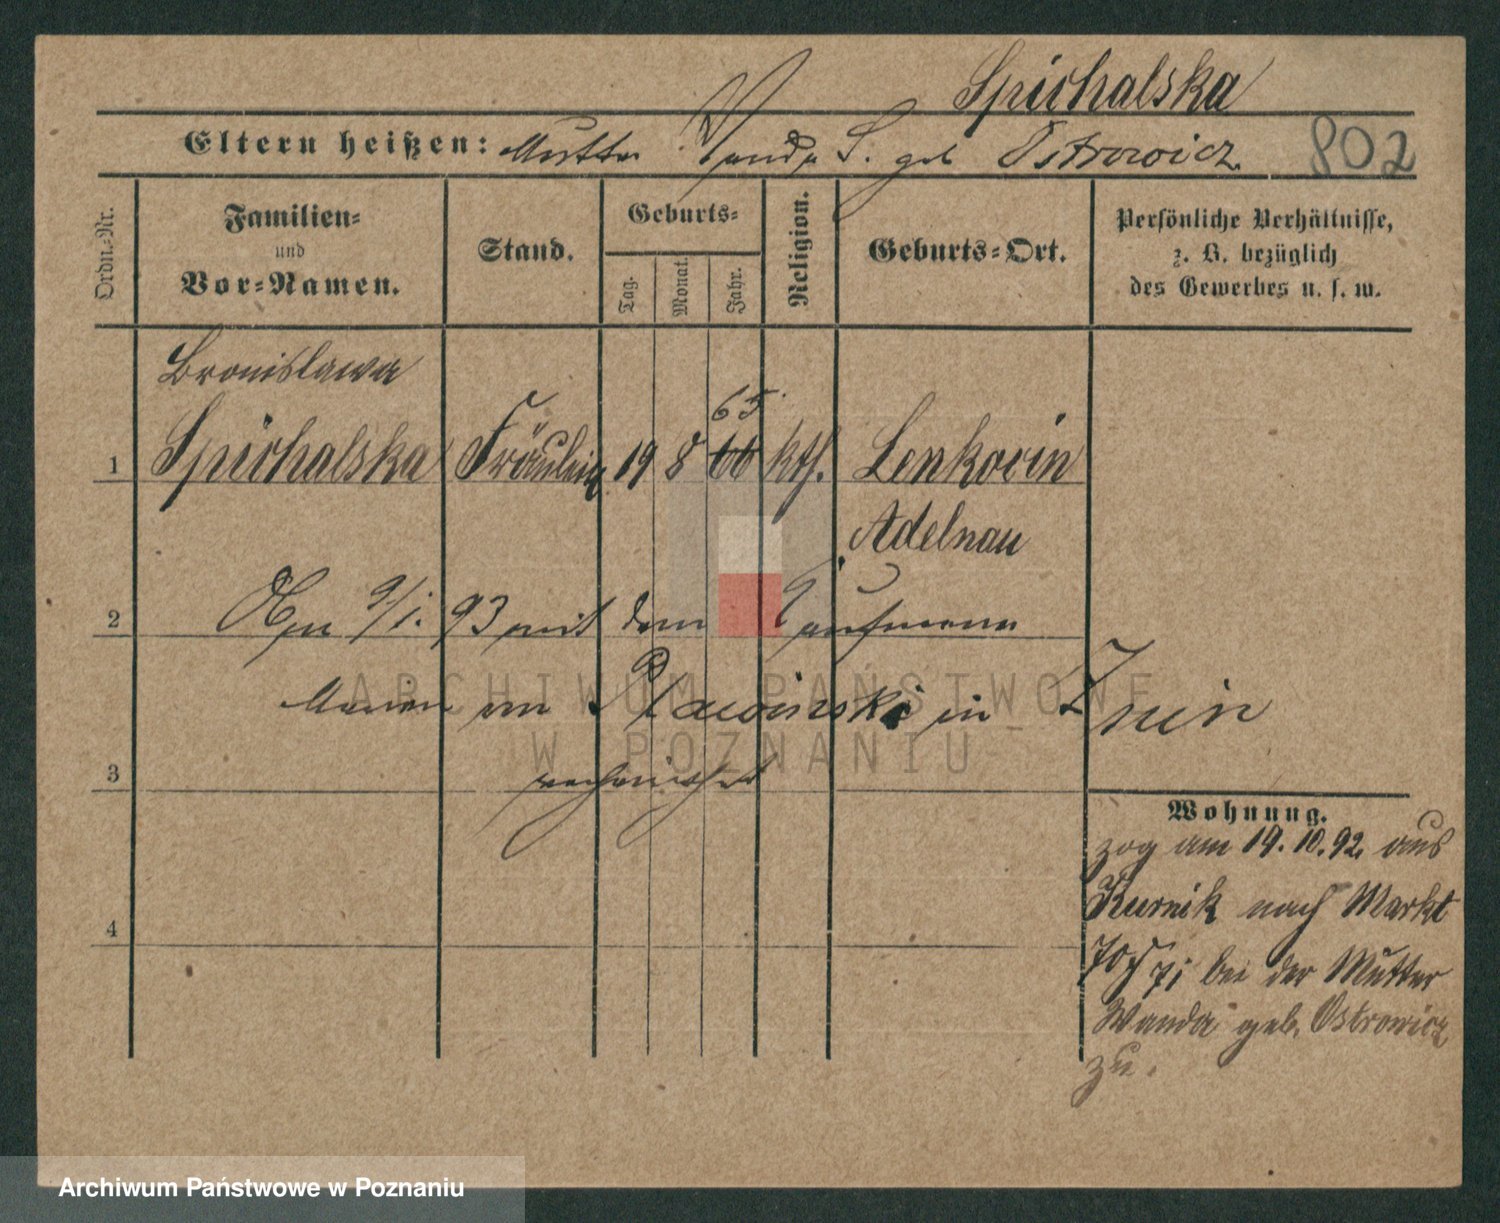 Spichalska
Eltern heißen: Mutter Wanda S. geb Ostrowicz
802
Ordn.=Nr.
Familien=
und
Vor=Namen.
Stand.
Geburts=
Tag.
Monat.
Jahr.
Religion.
Geburts=Ort.
Persönliche Verhältnisse,
z. B. bezüglich
des Gewerbes u. s. w.
Bronislawa
65
1 Spichalska Fräulein 19 8 66 kth. Lenkocin
Adelnau
2 Am 9/1. 93 mit dem Kaufmann
Marian von in Znin
3
4
Wohnung.
zog am 19. 10. 92. aus
Kurnik nach Markt
bei der Mutter
Wanda geb. Ostrowicz
zu.
ARCHIWUM PAŃSTWOWE
W POZNANIU
Archiwum Państwowe w Poznaniu